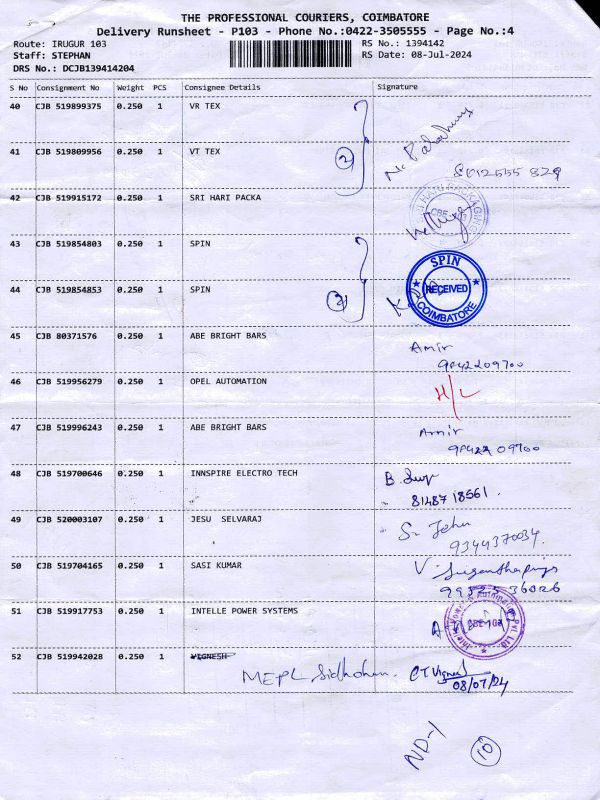 THE PROFESSIONAL COURIERS, COIMBATORE
Delivery Runsheet - P103 - Phone No.:0422-3505555 - Page No.:4
Route: IRUGUR 103 RS No.: 1394142
Staff: STEPHAN RS Date: 08-Jul-2024
DRS No.: DCJB139414204
S No Consignment No Weight PCS Consignee Details Signature
40 CJB 519899375 0.250 1 VR TEX
41 CJB 519809956 0.250 1 VT TEX
2
42 CJB 519915172 0.250 1 SRI HARI PACKA
43 CJB 519854803 0.250 1 SPIN
SPIN
44 CJB 519854853 0.250 1 SPIN
2
RECEIVED
COIMBATORE
45 CJB 80371576 0.250 1 ABE BRIGHT BARS Amir
9842209700
46 CJB 519956279 0.250 1 OPEL AUTOMATION H/L
47 CJB 519996243 0.250 1 ABE BRIGHT BARS Amir
98422 09700
48 CJB 519700646 0.250 1 INNSPIRE ELECTRO TECH
8148718561.
49 CJB 520003107 0.250 1 JESU SELVARAJ S. John
9344370034.
50 CJB 519704165 0.250 1 SASI KUMAR
51 CJB 519917753 0.250 1 INTELLE POWER SYSTEMS
52 CJB 519942028 0.250 1 VIGNESH
MEPL
08/07/24
ND-1
10